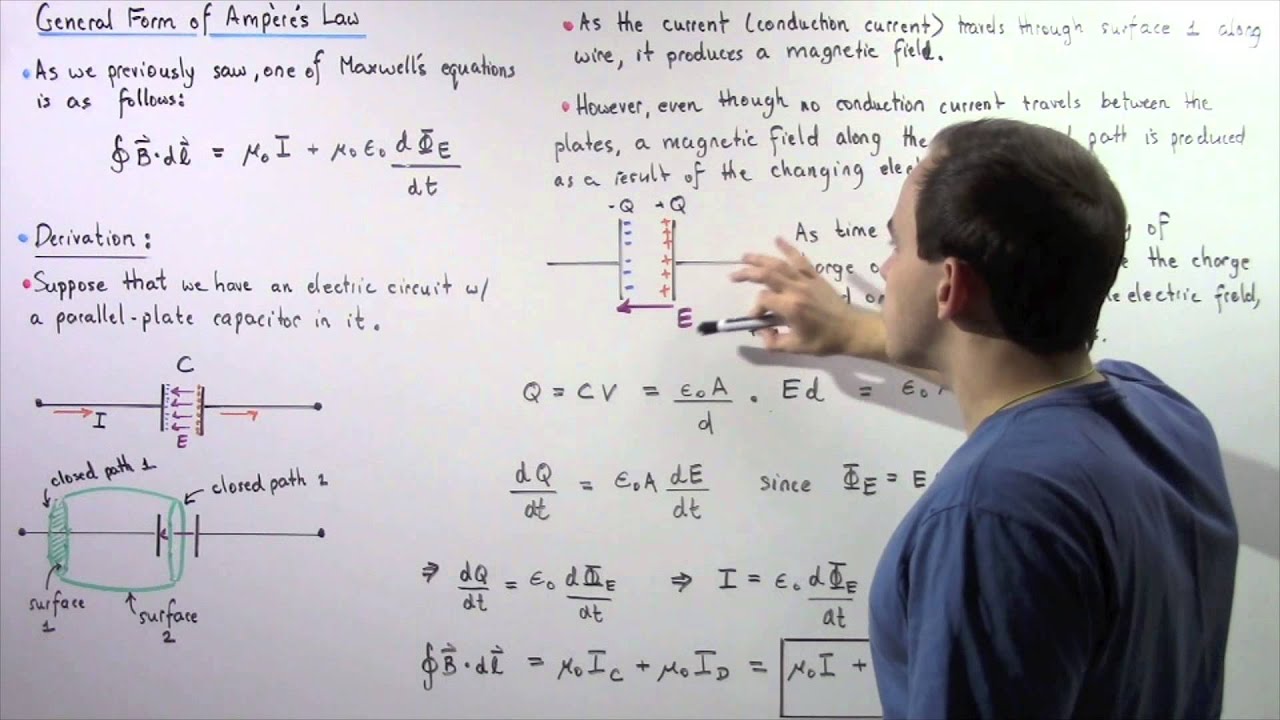 General Form of Ampère's Law
• As we previously saw, one of Maxwell's equations
is as follows:
∮ B⃗ · dℓ⃗ = μ₀ I + μ₀ ε₀ dΦ_E / dt
• Derivation:
• Suppose that we have an electric circuit w/
a parallel-plate capacitor in it.
C
I
E
closed path 1
closed path 2
surface 1
surface 2
• As the current (conduction current) travels through surface 1 along
wire, it produces a magnetic field.
• However, even though no conduction current travels between the
plates, a magnetic field along the path is produced
as a result of the changing
-Q +Q
E
As time of
the charge
electric field,
Q = CV = ε₀A / d · Ed = ε₀
dQ / dt = ε₀A dE / dt since Φ_E = E
⇒ dQ / dt = ε₀ dΦ_E / dt ⇒ I = ε₀ dΦ_E / dt
∮ B⃗ · dℓ⃗ = μ₀ I_C + μ₀ I_D = μ₀ I +